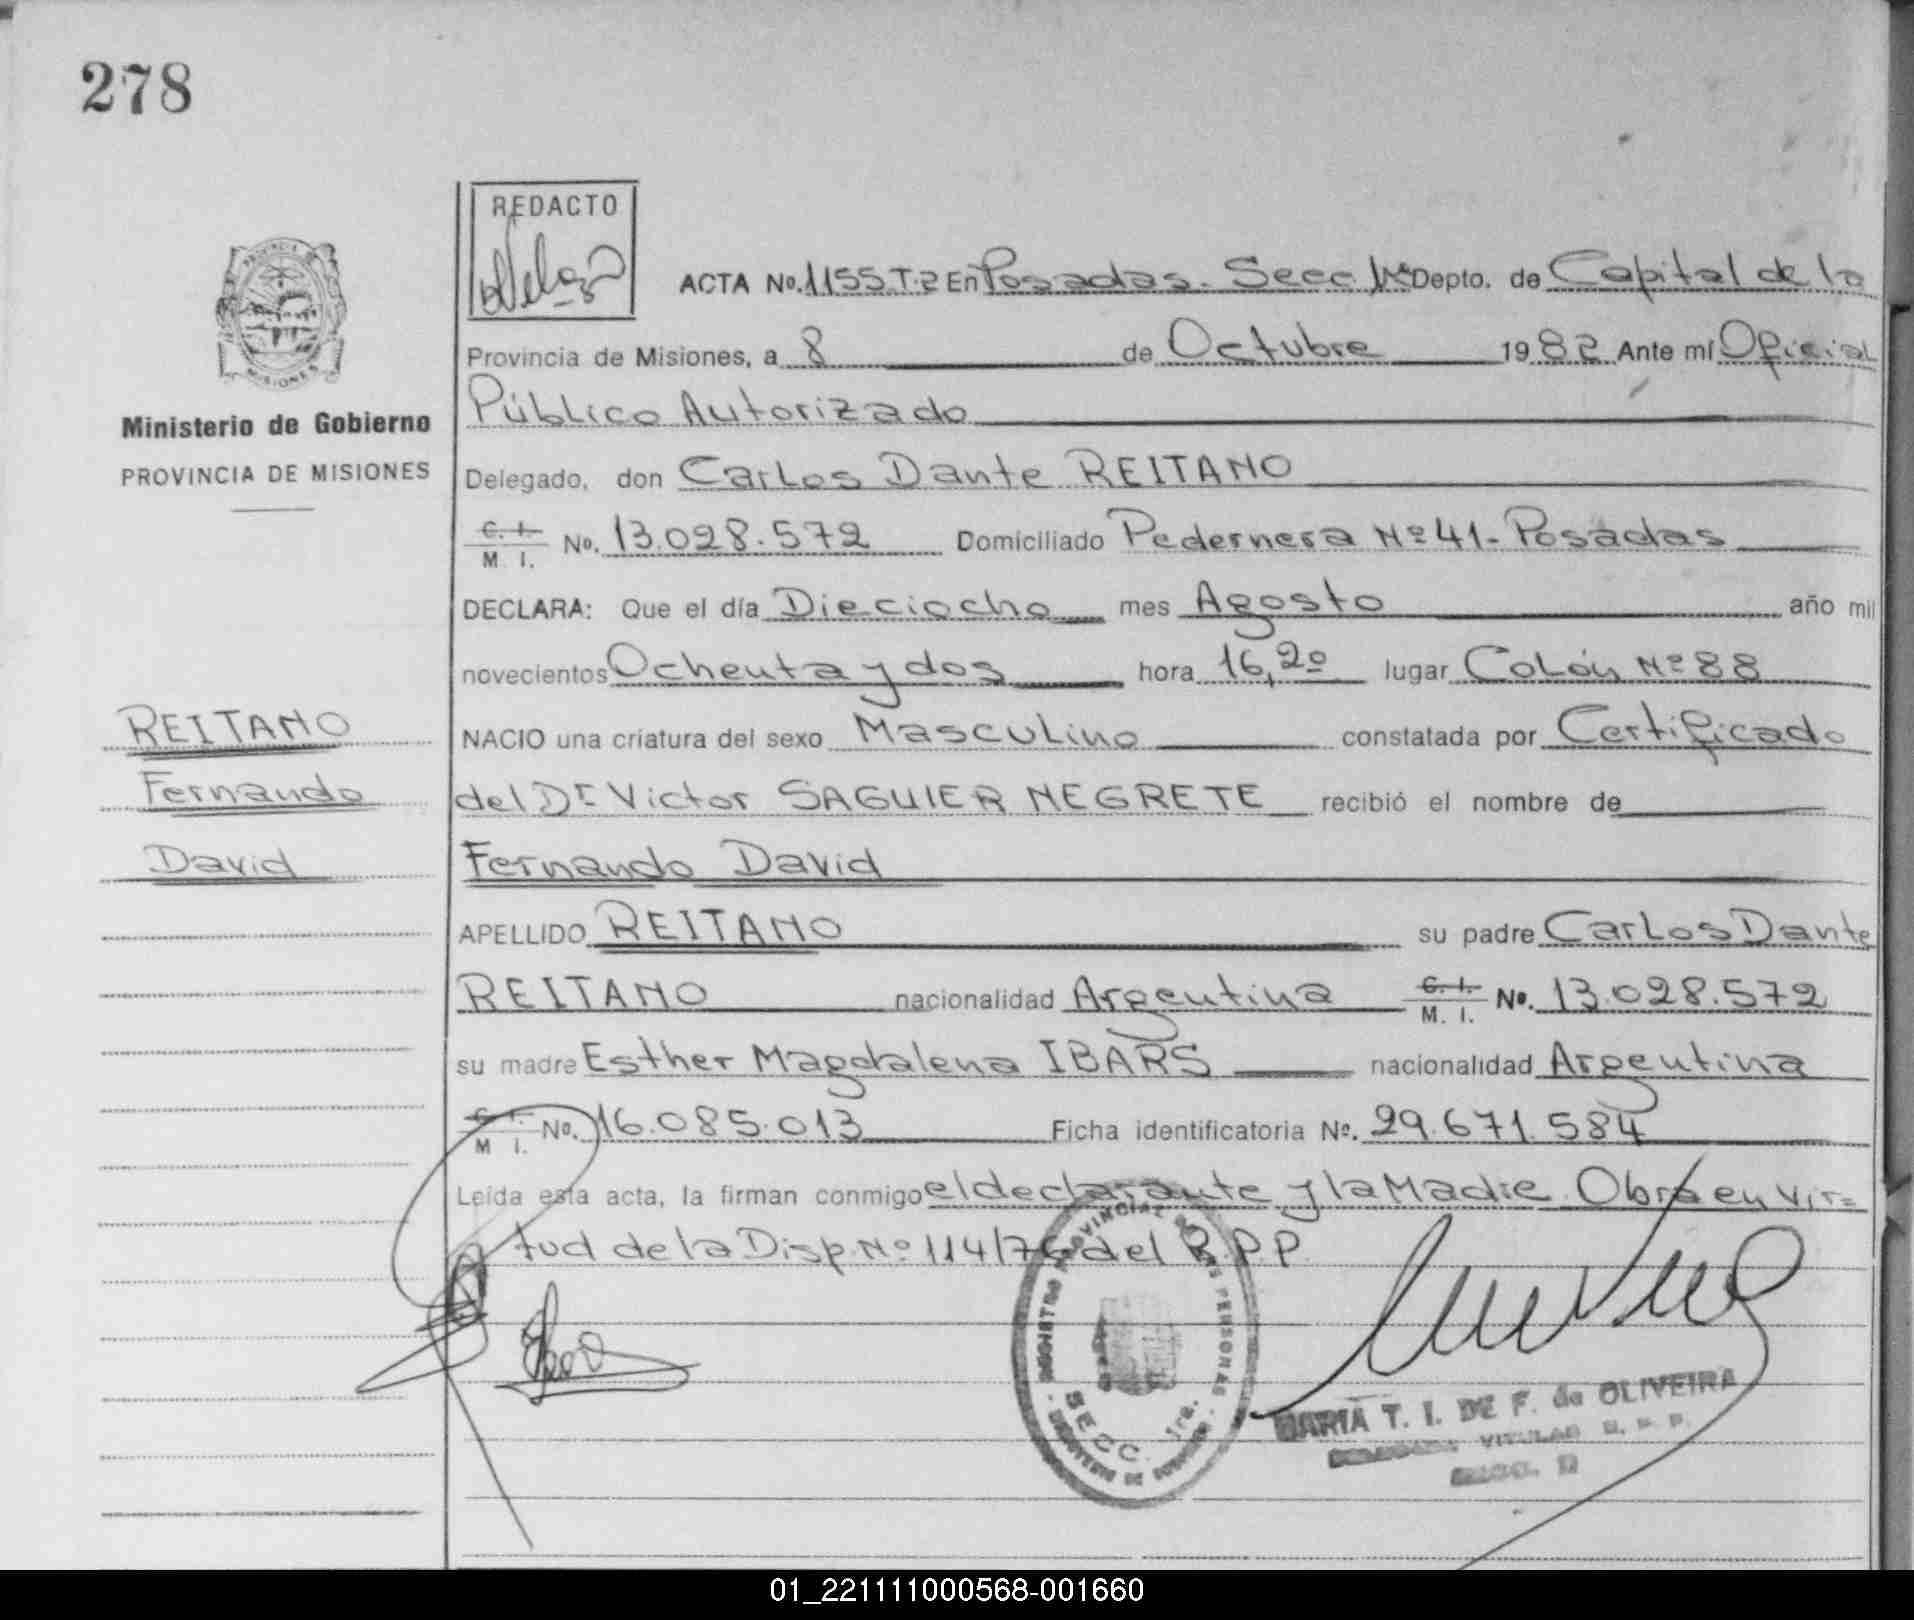 278
REDACTO
ACTA No. 1155 T.2 En Posadas. Secc. 1ra Depto. de Capital de la
Provincia de Misiones, a 8 de Octubre 1982 Ante mí Oficial
Público Autorizado
Delegado, don Carlos Dante REITANO
C. I.
M. I. No. 13.028.572 Domiciliado Pedernera Nº 41 - Posadas
DECLARA: Que el día Dieciocho mes Agosto año mil
novecientos Ochenta y dos hora 16,20 lugar Colón Nº 88
NACIO una criatura del sexo Masculino constatada por Certificado
del Dr Victor SAGUIER NEGRETE recibió el nombre de
Fernando David
APELLIDO REITANO su padre Carlos Dante
REITANO nacionalidad Argentina C. I. M. I. No. 13.028.572
su madre Esther Magdalena IBARS nacionalidad Argentina
C. I.
M. I. No. 16.085.013 Ficha identificatoria Nº. 29.671.584
Leída esta acta, la firman conmigo el declarante y la Madre. Obra en vir=
tud de la Disp. Nº 114/76 del R.P.P.
PROVINCIA DE
MISIONES
Ministerio de Gobierno
PROVINCIA DE MISIONES
REITANO
Fernando
David
REGISTRO PROVINCIAL DE LAS PERSONAS
SECC. 1ra.
MINISTERIO DE GOBIERNO
MARIA T. I. DE F. de OLIVEIRA
TITULAR R. P. P.
01_221111000568-001660